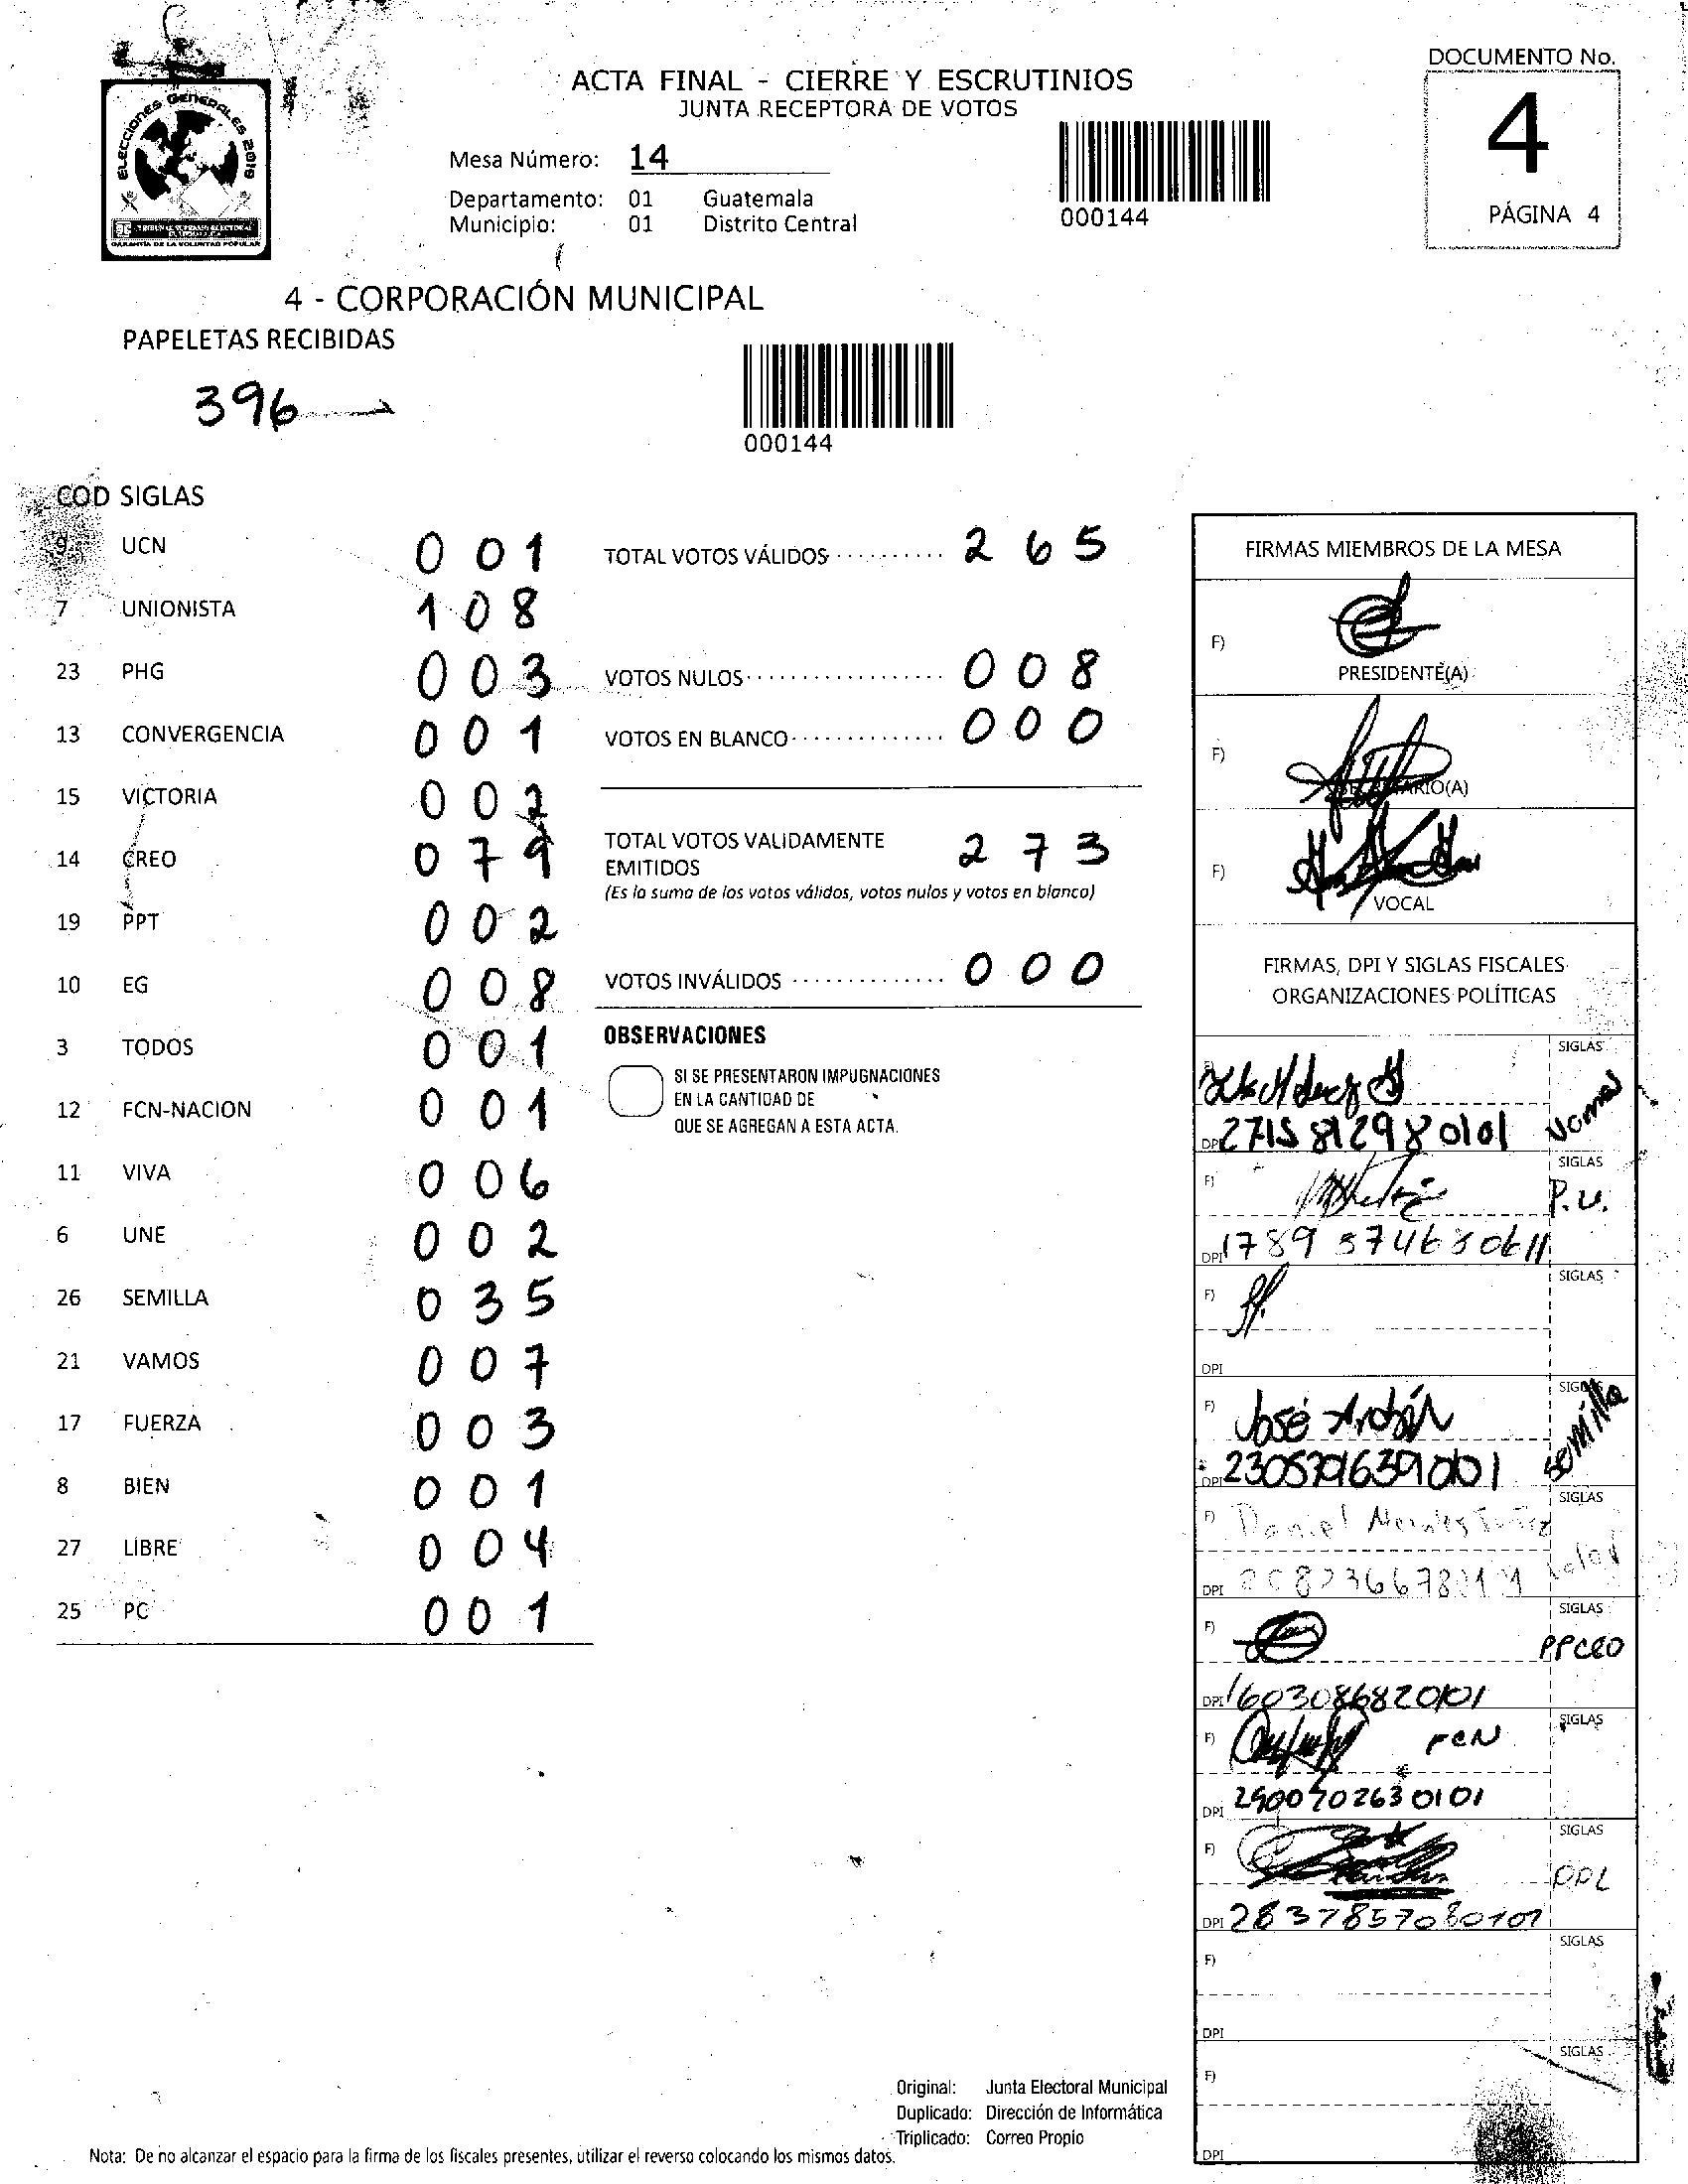 DOCUMENTO No.
4
PÁGINA 4
ELECCIONES GENERALES 2019
TRIBUNAL SUPREMO ELECTORAL
GARANTÍA DE LA VOLUNTAD POPULAR
ACTA FINAL - CIERRE Y ESCRUTINIOS
JUNTA RECEPTORA DE VOTOS
Mesa Número: 14
Departamento: 01 Guatemala
Municipio: 01 Distrito Central
000144
4 - CORPORACIÓN MUNICIPAL
PAPELETAS RECIBIDAS
396
000144
COD SIGLAS
9 UCN 0 0 1
7 UNIONISTA 1 0 8
23 PHG 0 0 3
13 CONVERGENCIA 0 0 1
15 VICTORIA 0 0 2
14 CREO 0 7 9
19 PPT 0 0 2
10 EG 0 0 8
3 TODOS 0 0 1
12 FCN-NACION 0 0 1
11 VIVA 0 0 6
6 UNE 0 0 2
26 SEMILLA 0 3 5
21 VAMOS 0 0 7
17 FUERZA 0 0 3
8 BIEN 0 0 1
27 LIBRE 0 0 4
25 PC 0 0 1
TOTAL VOTOS VÁLIDOS 2 6 5
VOTOS NULOS 0 0 8
VOTOS EN BLANCO 0 0 0
TOTAL VOTOS VALIDAMENTE
EMITIDOS 2 7 3
(Es la suma de los votos válidos, votos nulos y votos en blanco)
VOTOS INVÁLIDOS 0 0 0
OBSERVACIONES
SI SE PRESENTARON IMPUGNACIONES
EN LA CANTIDAD DE
QUE SE AGREGAN A ESTA ACTA.
FIRMAS MIEMBROS DE LA MESA
F)
PRESIDENTE(A)
F)
SECRETARIO(A)
F)
VOCAL
FIRMAS, DPI Y SIGLAS FISCALES
ORGANIZACIONES POLÍTICAS
F) SIGLAS
DPI 2715 81298 0101
F) SIGLAS
P.U.
DPI
F) SIGLAS
DPI
F) José SIGLAS
semilla
DPI
F) Daniel SIGLAS
DPI
F) SIGLAS
DPI 1603086820101
F) FCN SIGLAS
DPI 2900702630101
F) SIGLAS
DPI 2837857080101
F) SIGLAS
DPI
F) SIGLAS
DPI
Original: Junta Electoral Municipal
Duplicado: Dirección de Informática
Triplicado: Correo Propio
Nota: De no alcanzar el espacio para la firma de los fiscales presentes, utilizar el reverso colocando los mismos datos.